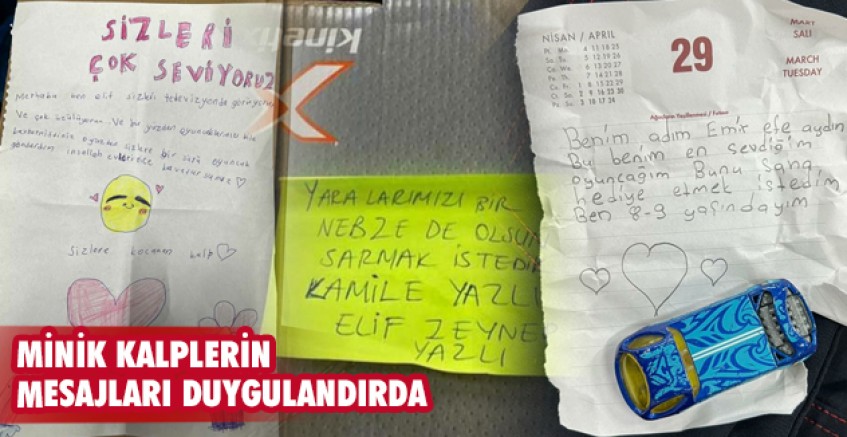 SİZLERİ
ÇOK SEVİYORUZ
Merhaba ben elif sizleri televizyonda görüyorum
Ve çok üzülüyorum. Ve bu yüzden oyuncaklarımı
sizlere bir sürü oyuncak
gönderdim inşallah evlerinize
sizlere kocaman kalp
kineti
YARALARIMIZI BİR
NEBZE DE OLSUN
SARMAK İSTEDİK
KAMİLE YAZLI
ELİF ZEYNEP
YAZLI
NİSAN / APRIL
29
MART
SALI
MARCH
TUESDAY
Benim adım Emir efe aydın
Bu benim en sevdiğim
oyuncağım Bunu sana
hediye etmek istedim
Ben 8-9 yaşındayım
MİNİK KALPLERİN
MESAJLARI DUYGULANDIRDA